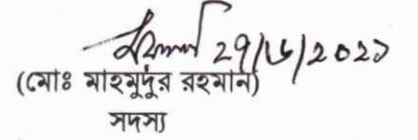 ২৭/৬/২০২১
(মোঃ মাহমুদুর রহমান)
সদস্য